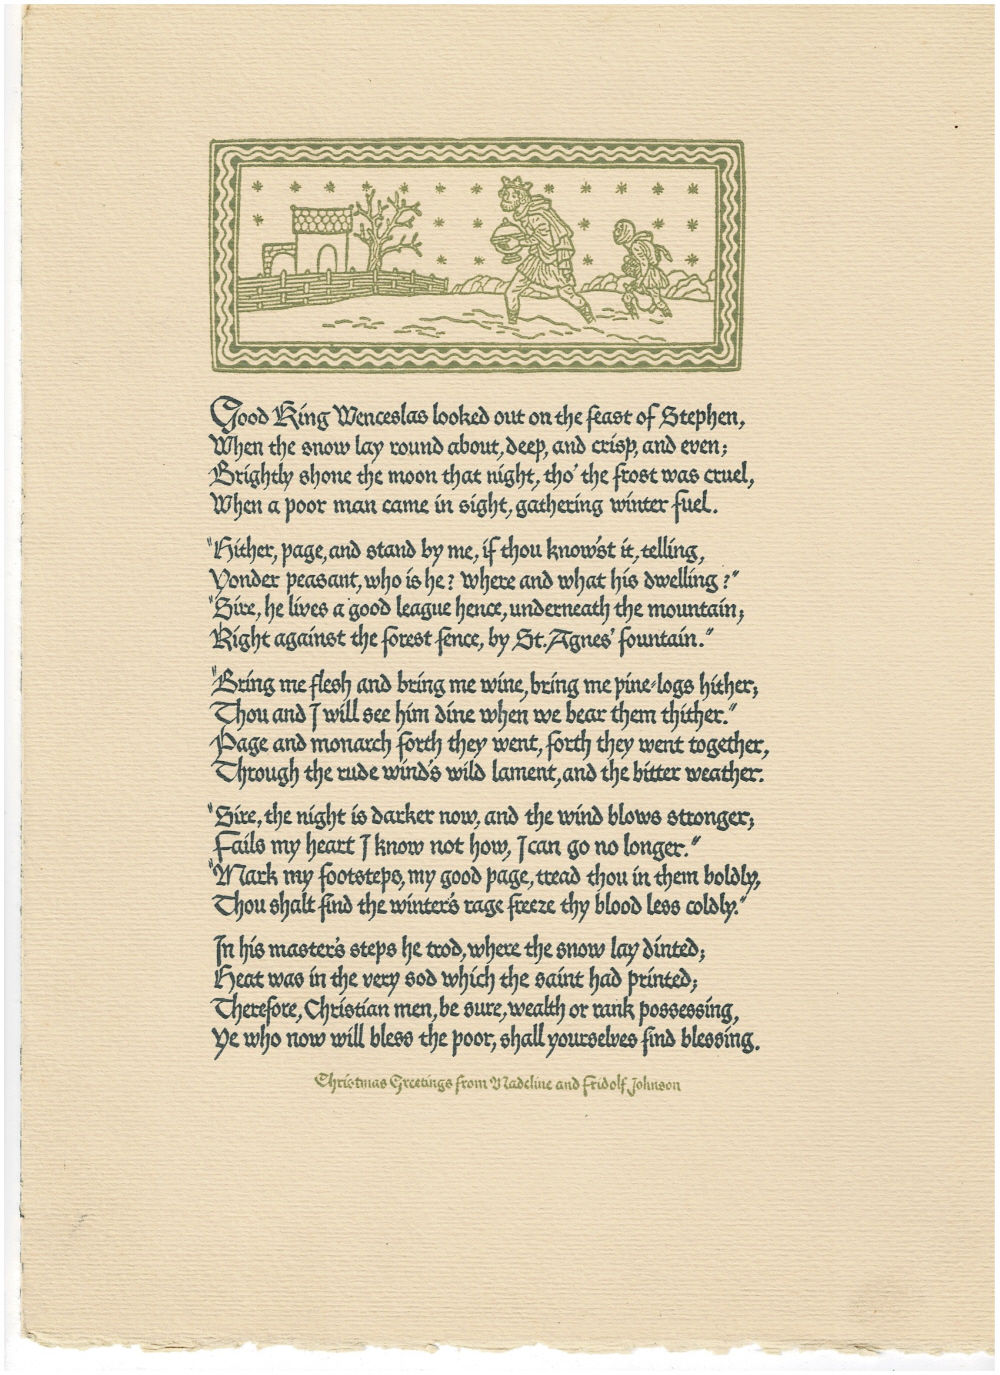 Good King Wenceslas looked out on the feast of Stephen,
When the snow lay round about, deep, and crisp, and even;
Brightly shone the moon that night, tho' the frost was cruel,
When a poor man came in sight, gathering winter fuel.
"Hither, page, and stand by me, if thou know'st it, telling,
Yonder peasant, who is he? Where and what his dwelling?"
"Sire, he lives a good league hence, underneath the mountain;
Right against the forest fence, by St. Agnes' fountain."
"Bring me flesh and bring me wine, bring me pine-logs hither;
Thou and I will see him dine when we bear them thither."
Page and monarch forth they went, forth they went together,
Through the rude wind's wild lament, and the bitter weather.
"Sire, the night is darker now, and the wind blows stronger;
Fails my heart I know not how, I can go no longer."
"Mark my footsteps, my good page, tread thou in them boldly,
Thou shalt find the winter's rage freeze thy blood less coldly."
In his master's steps he trod, where the snow lay dinted;
Heat was in the very sod which the saint had printed;
Therefore, Christian men, be sure, wealth or rank possessing,
Ye who now will bless the poor, shall yourselves find blessing.
Christmas Greetings from Madeline and Fridolf Johnson